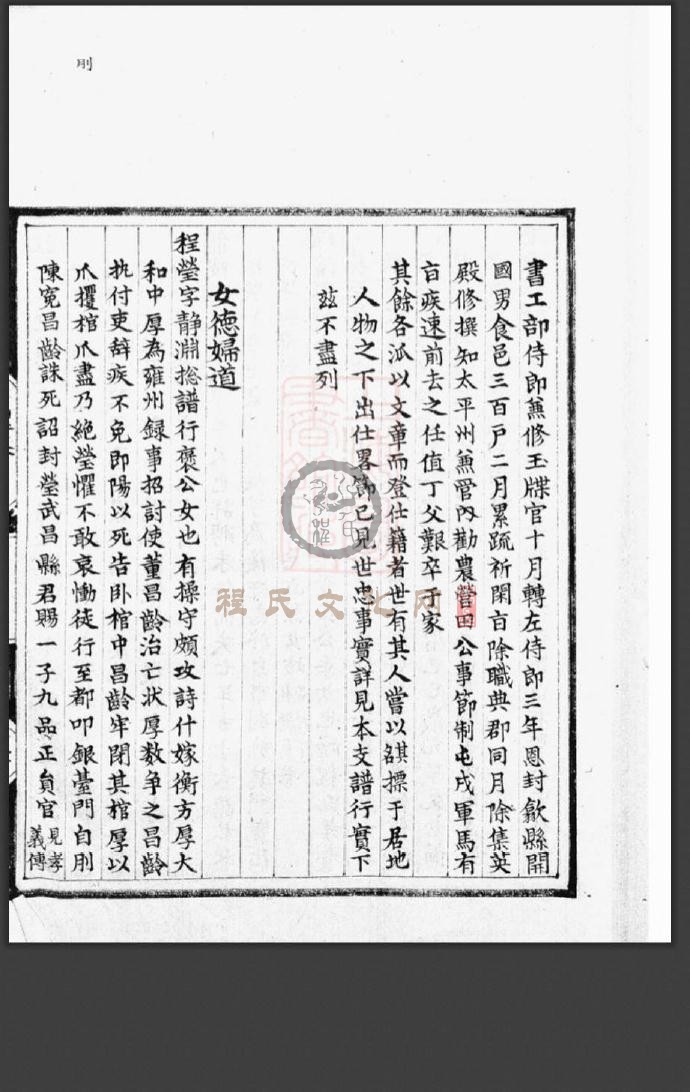 刖
書工部侍郎兼修玉牒官十月轉左侍郎三年恩封歙縣開
國男食邑三百戸二月累疏祈閑㫖除職典郡同月除集英
殿修撰知太平州兼管內勸農營田公事節制屯戍軍馬有
㫖疾速前去之任值丁父艱卒于家
其餘各派以文章而登仕籍者世有其人嘗以綴標于居地
人物之下出仕畧飾已見世忠事實詳見本支譜行實下
玆不盡列
女德婦道
程瑩字静淵捴譜行褒公女也有操守頗攻詩什嫁衡方厚大
和中厚為雍州録事招討使董昌齡治亡状厚数争之昌齡
执付吏辞疾不免即陽以死告卧棺中昌齡牢閉其棺厚以
爪攫棺爪盡乃絕瑩懼不敢哀慟徒行至都叩銀臺門自刖
陳寃昌齡誅死詔封瑩武昌縣君賜一子九品正貟官見孝義傳
程氏文化网